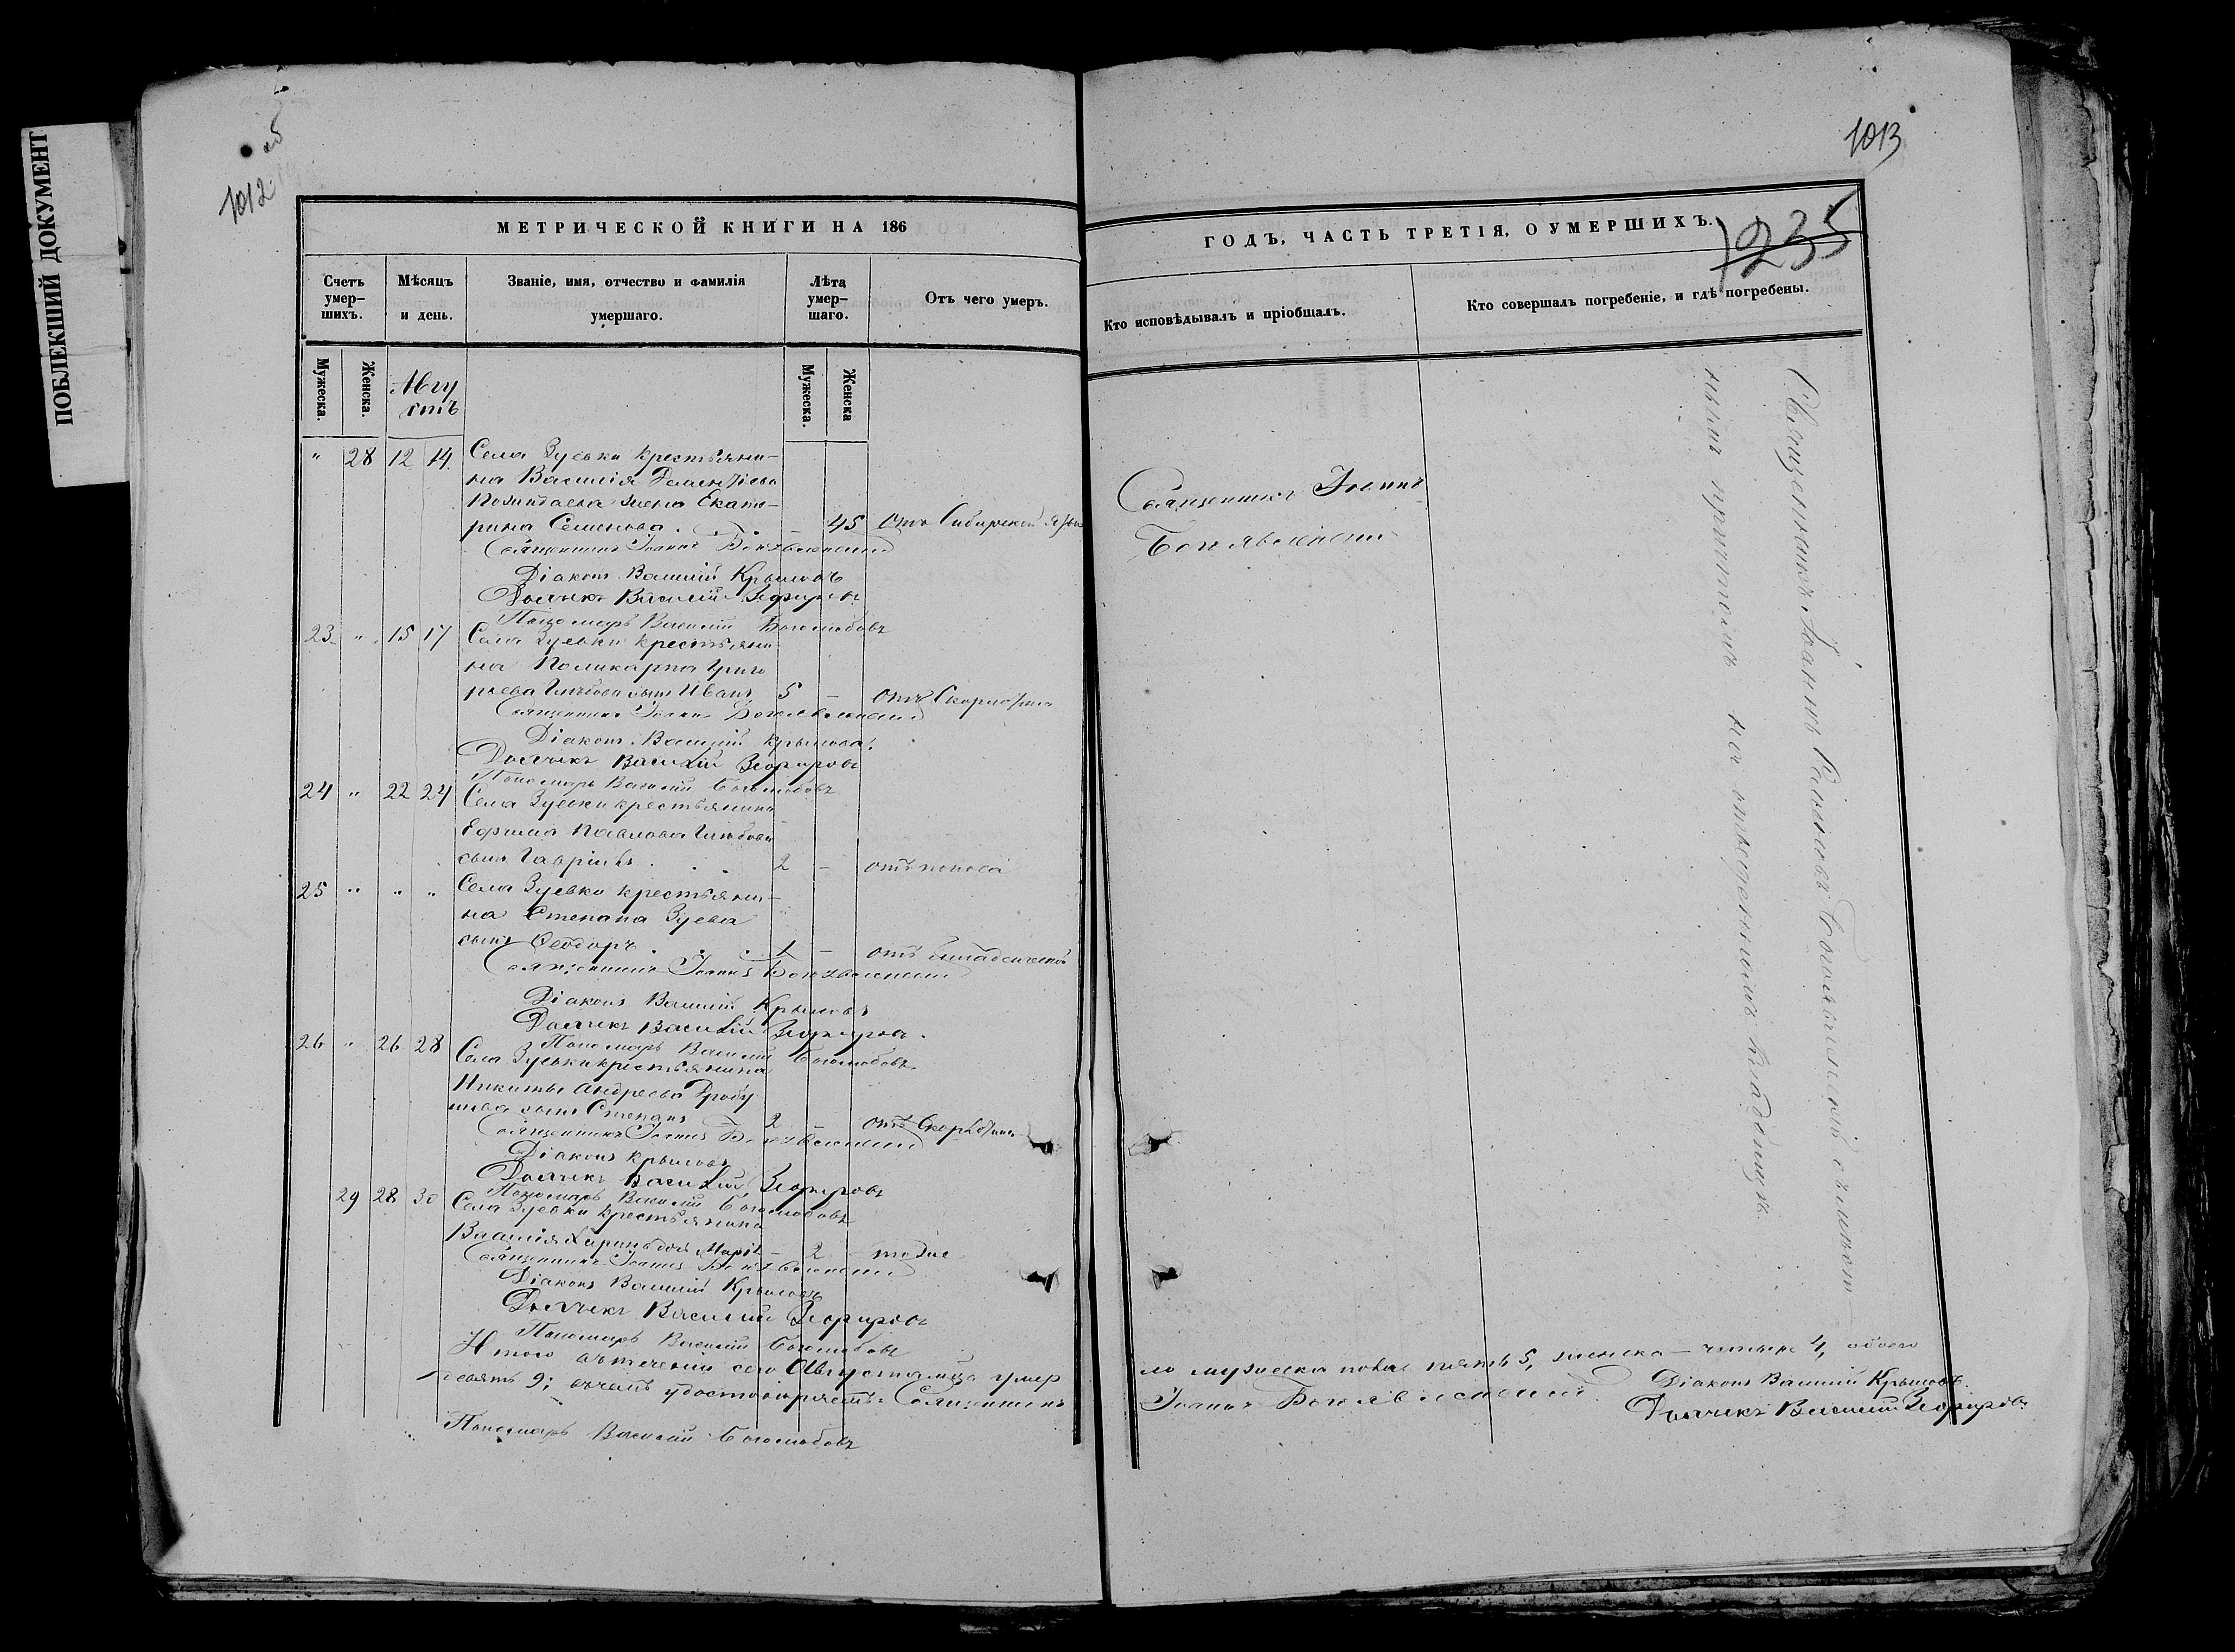 ПОБЛЕКШИЙ ДОКУМЕНТ
1012 об
МЕТРИЧЕСКОЙ КНИГИ НА 186
Счетъ умер-
шихъ.
Мѣсяцъ
и день.
Званіе, имя, отчество и фамилія
умершаго.
Лѣта
умер-
шаго.
Отъ чего умеръ.
Мужеска.
Женска.
Авгу
стъ
Мужеска.
Женска
" 28 12 14. Села Зуевки крестьяни-
на Василія
жена Екате-
рина Семенова. . . . — 45 Отъ Сибирской язвы
Священникъ Іоаннъ Богоявленскій
Діаконъ Василій Крыловъ
Дьячекъ Василій Зефировъ
Пономарь Василій Боголюбовъ
23 " 15 17 Села Зуевки крестьяни
на Поликарпа Григо
рьева Глѣбова сынъ Иванъ 5 — отъ Скарлатины
Священникъ Іоаннъ Богоявленскій
Діаконъ Василій Крыловъ
Дьячекъ Василій Зефировъ
Пономарь Василій Боголюбовъ
24 " 22 24 Села Зуевки крестьянина
Ефима Павлова Глѣбова
сынъ Гавріилъ . . . 2 — отъ поноса
25 " " " Села Зуевки крестьяни-
на Степана Зуева
сынъ Ѳеодоръ . . . . 1 — отъ младенческой
Священникъ Іоаннъ Богоявленскій
Діаконъ Василій Крыловъ
Дьячекъ Василій Зефировъ
Пономарь Василій Боголюбовъ
26 " 26 28 Села Зуевки крестьянина
Никиты Андреева
сынъ Степанъ 2 — отъ Скарлатины
Священникъ Іоаннъ Богоявленскій
Діаконъ Крыловъ
Дьячекъ Василій Зефировъ
Пономарь Василій Боголюбовъ
29 28 30 Села Зуевки крестьянина
Василія дочь Марія — 2 тоже
Священникъ Іоаннъ Богоявленскій
Діаконъ Василій Крыловъ
Дьячекъ Василій Зефировъ
Пономарь Василій Боголюбовъ
Итого въ теченіи сего Августа м-ца умер
девять 9; въ чемъ удостовѣряетъ: Священникъ
Пономарь Василій Боголюбовъ
1013
ГОДЪ, ЧАСТЬ ТРЕТІЯ, О УМЕРШИХЪ.
1235
Кто исповѣдывалъ и пріобщалъ.
Кто совершалъ погребеніе, и гдѣ погребены.
Священникъ Іоаннъ
Богоявленскій
Священникъ Іоаннъ Богоявленскій съ
нымъ причтомъ на отведенномъ кладбищѣ.
ло мужеска пола пять 5, женска — четыре 4, обоего
Іоаннъ Богоявленскій
Діаконъ Василій Крыловъ.
Дьячекъ Василій Зефировъ.